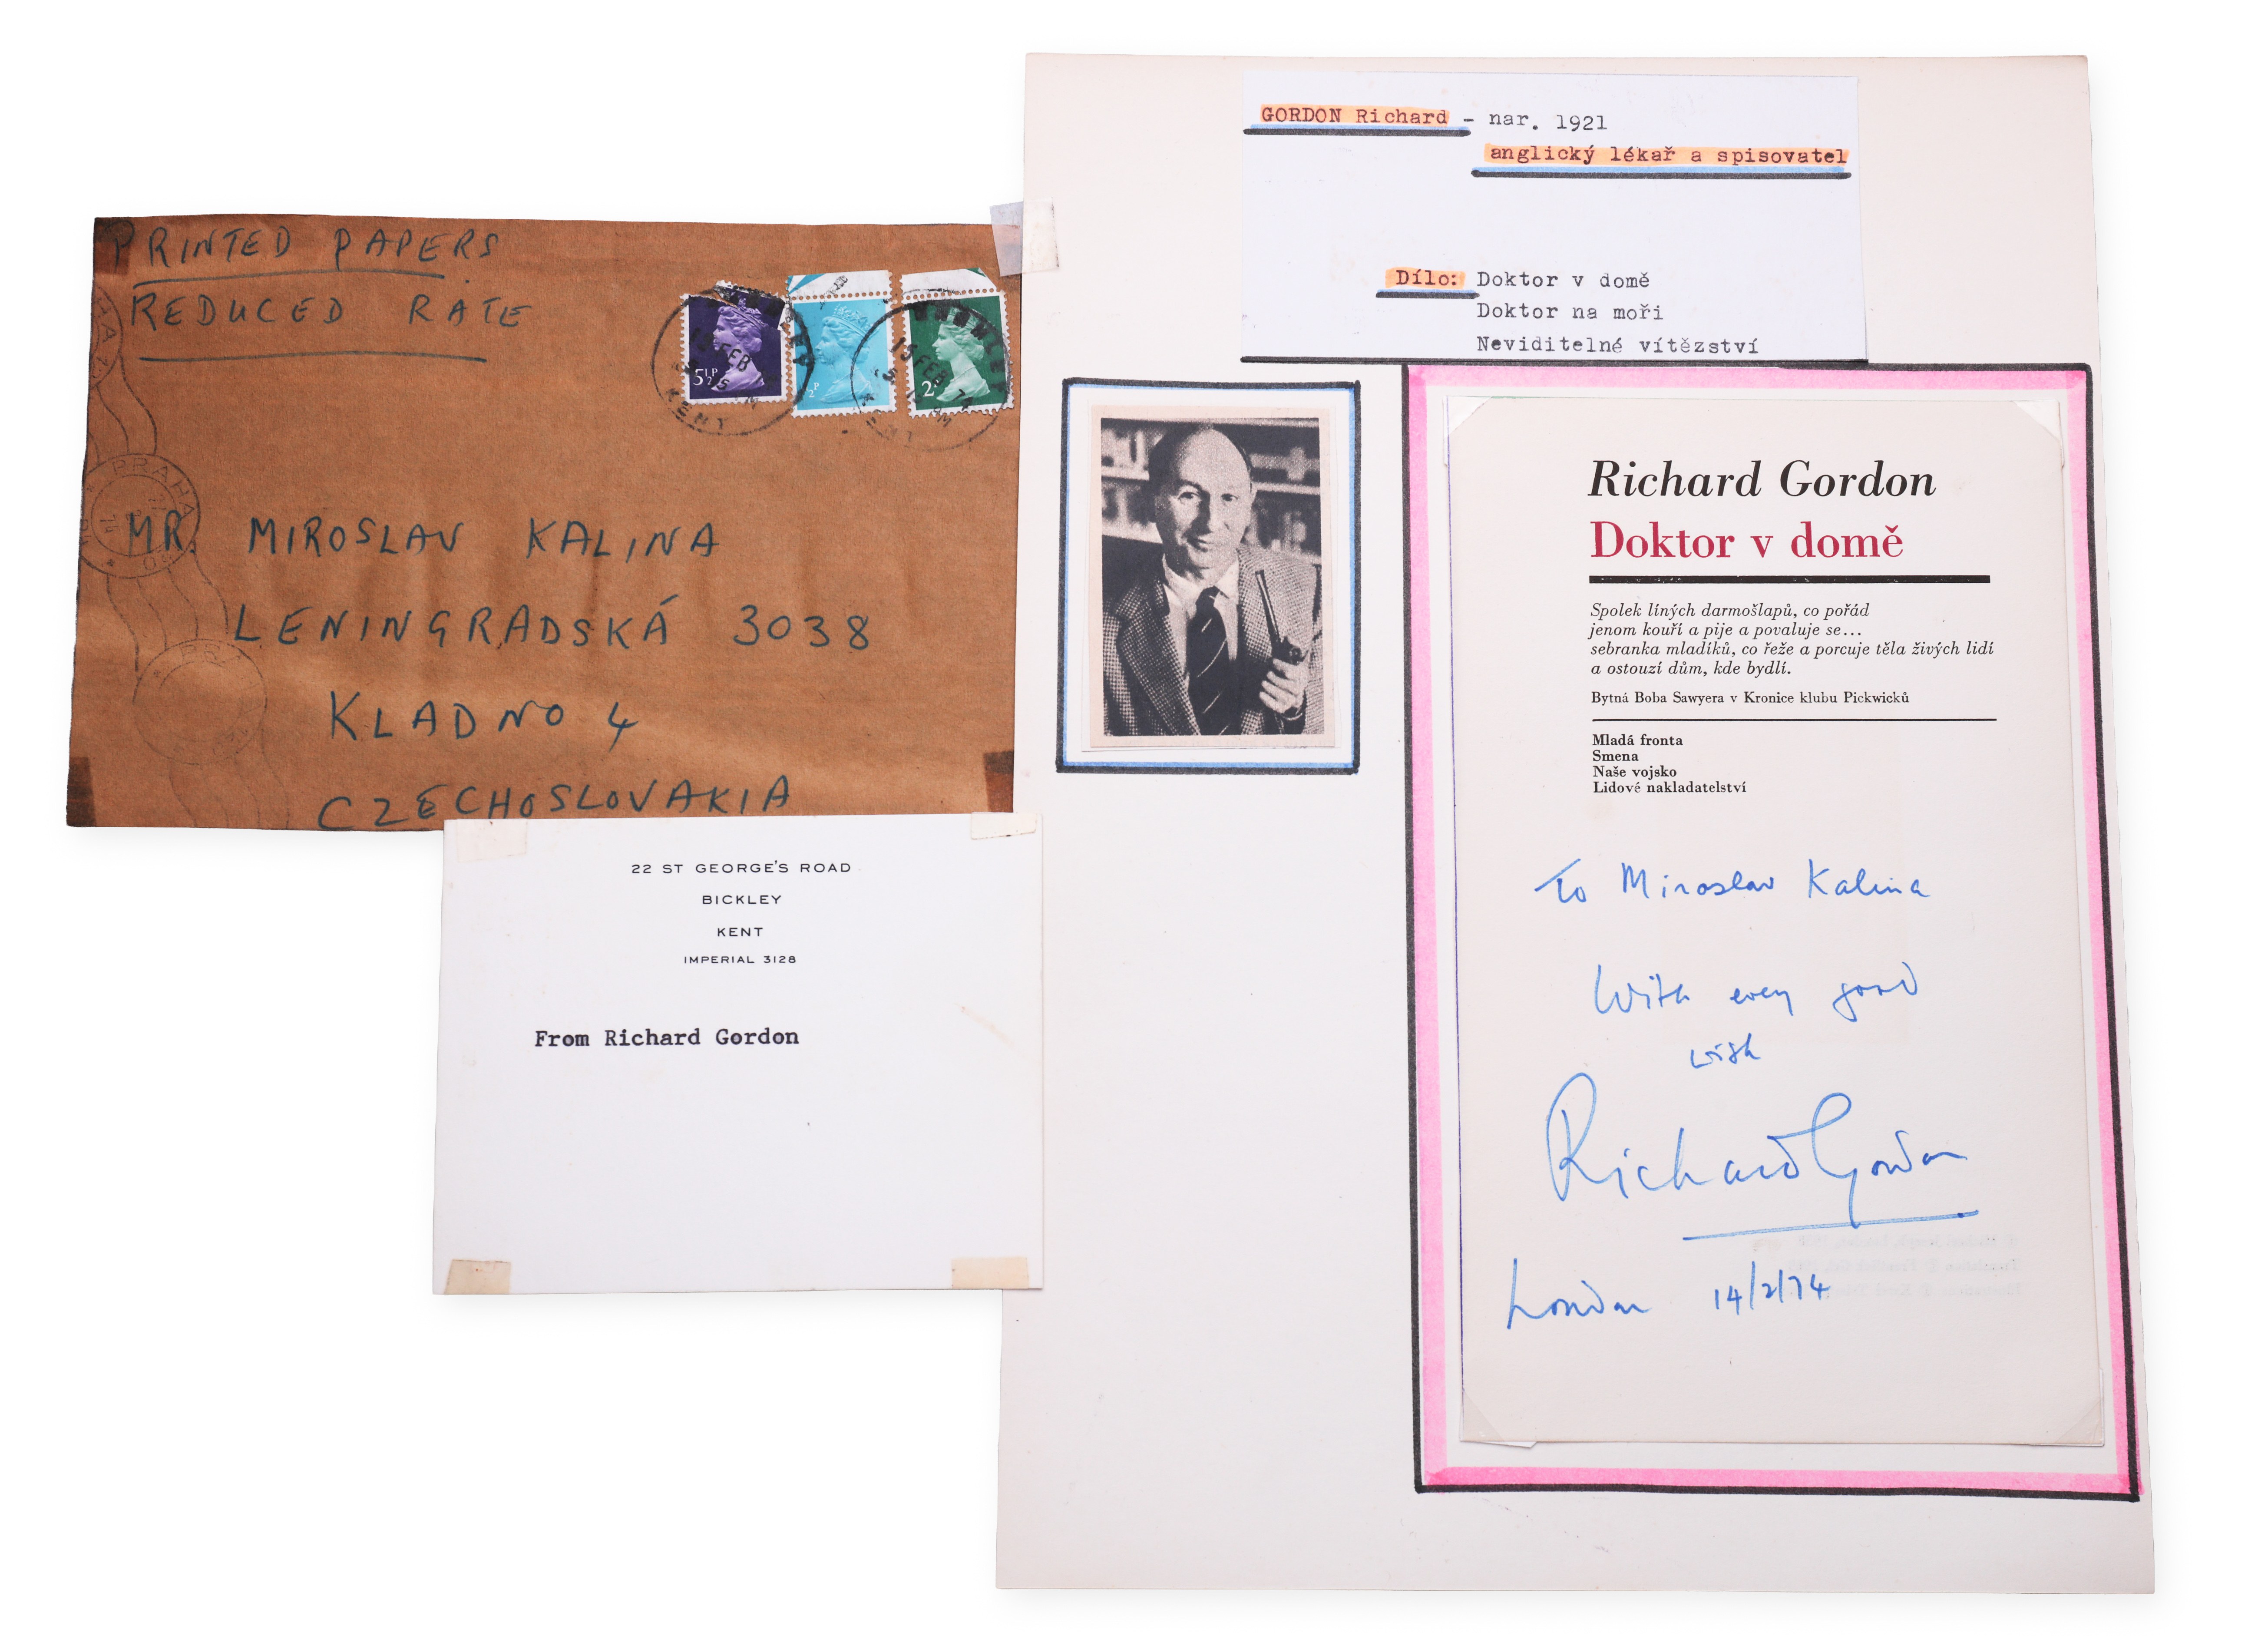 PRINTED PAPERS
REDUCED RATE
5½P
½P
2
15 FEB
KENT
15 FEB
74
KENT
PRAHA
MR. MIROSLAV KALINA
LENINGRADSKÁ 3038
KLADNO 4
CZECHOSLOVAKIA
22 ST GEORGE'S ROAD
BICKLEY
KENT
IMPERIAL 3128
From Richard Gordon
GORDON Richard - nar. 1921
anglický lékař a spisovatel
Dílo: Doktor v domě
Doktor na moři
Neviditelné vítězství
Richard Gordon
Doktor v domě
Spolek líných darmošlapů, co pořád
jenom kouří a pije a povaluje se...
sebranka mladíků, co řeže a porcuje těla živých lidí
a ostouzí dům, kde bydlí.
Bytná Boba Sawyera v Kronice klubu Pickwicků
Mladá fronta
Smena
Naše vojsko
Lidové nakladatelství
To Miroslav Kalina
With every good
wish
Richard Gordon
London 14/2/74